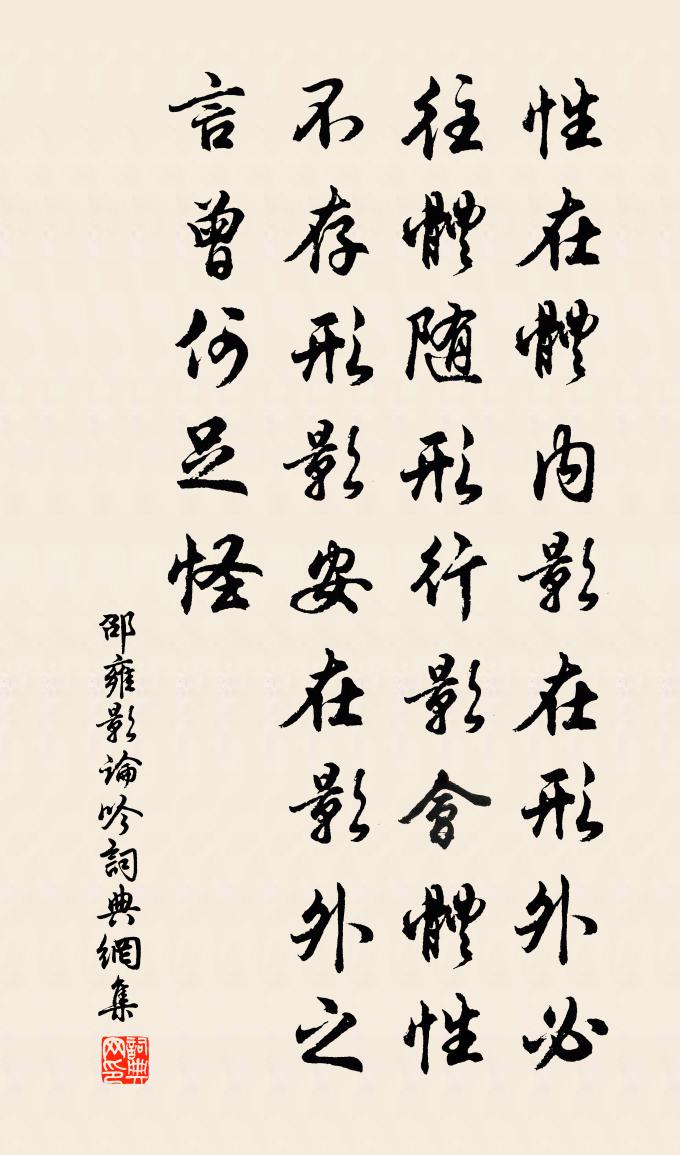 性在體内影在形外必
往體随形行影會體性
不存形影安在影外之
言曾何足怪
邵雍影論吟詞典網集
詞典网印